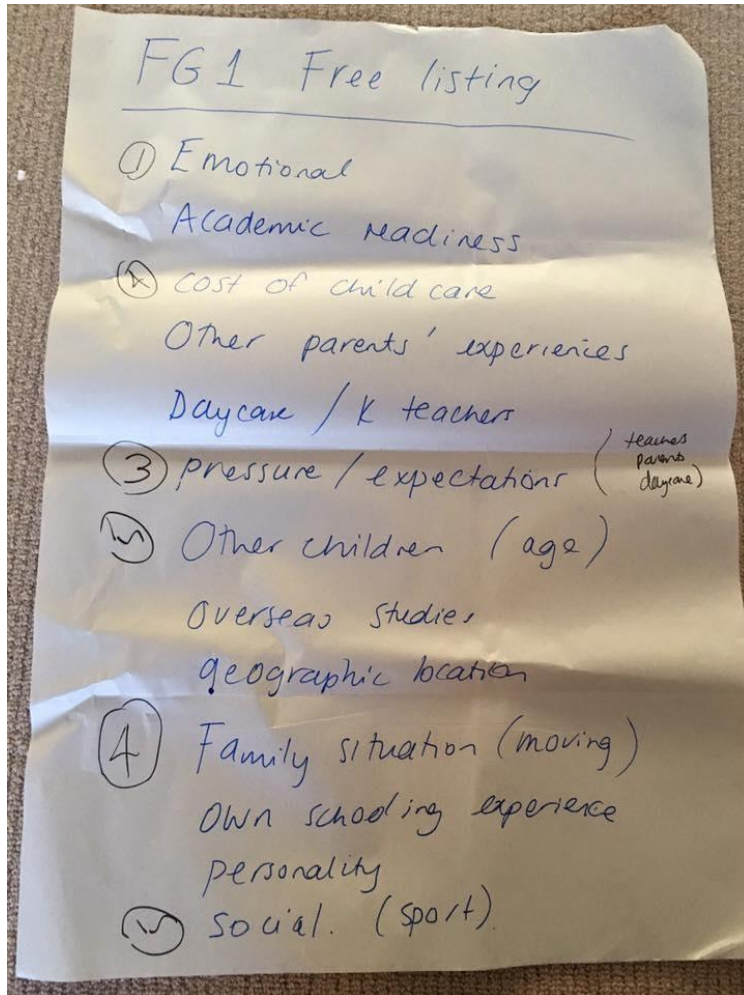 FG1 Free listing
① Emotional
Academic readiness
cost of child care
Other parents' experiences
Daycare / K teachers
③ pressure / expectations (teaches
parents
daycare)
Other children (age)
Overseas studies
geographic location
④ Family situation (moving)
own schooling experience
personality
social. (sport).